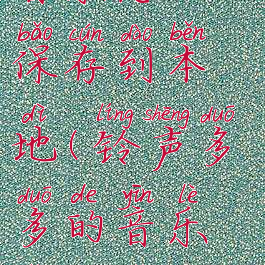 bǎo cún dào běn
保存到本
dì líng shēng duō
地(铃声多
duō de yīn lè
多的音乐